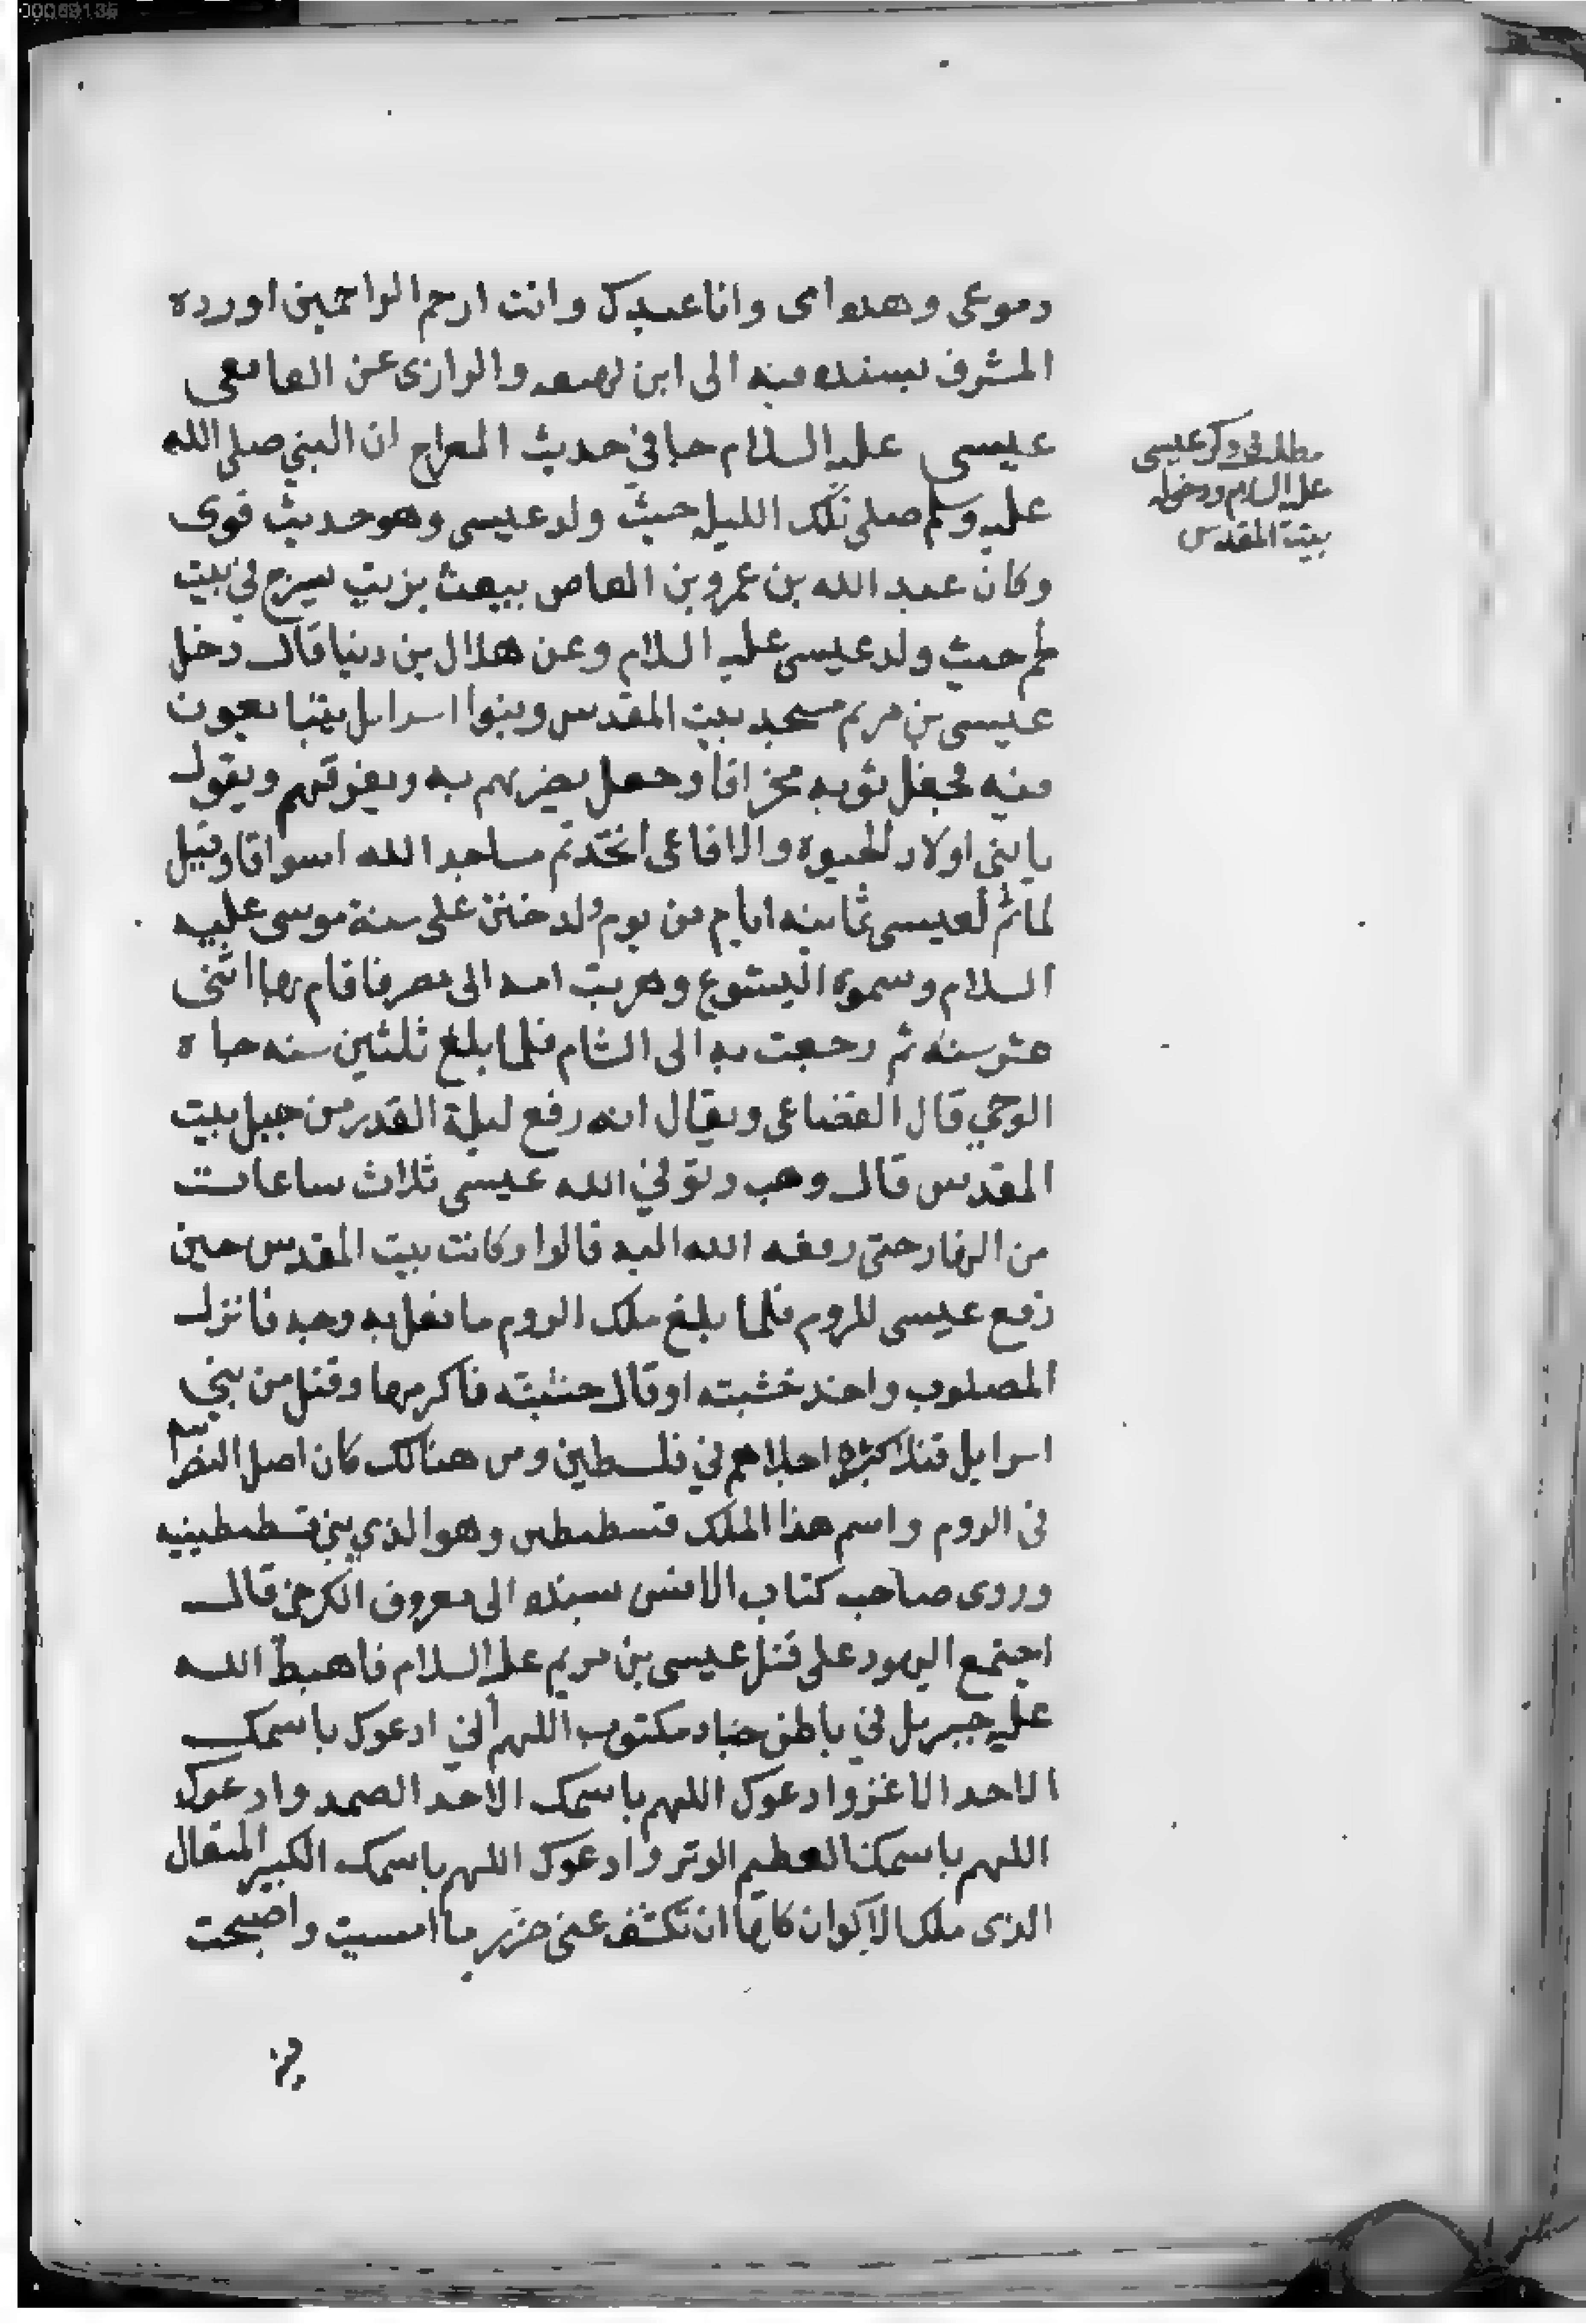 00069135
دموعى وهذه اى وانا عبدك وانت ارحم الراحمين اورده
المشرف بسنده فيه الى ابن لهيعه والرازى عن العافعى
عيسى عليه السلام جا في حديث المعراج ان النبي صلى الله
عليه وسلم صلى تلك الليله حيث ولد عيسى وهو حديث قوى
وكان عبد الله بن عمرو بن العاص يبعث بزيت يسرج في بيت
لحم حيث ولد عيسى عليه السلام وعن هلال بن دنيا قال دخل
عيسى بن مريم مسجد بيت المقدس وبنوا اسرايل يتبايعون
فيه فجعل ثوبه مخراقا وجعل يضربهم به ويفرقهم ويقول
يا بنى اولاد الحيوه والافاعى اتخذتم مساجد الله اسواقا وقيل
لما تم لعيسى ثمانيه ايام من يوم ولد ختن على سنة موسى عليه
السلام وسموه اليشوع وهربت امه الى مصر فاقام بها اثنى
عشر سنه ثم رجعت به الى الشام فلما بلغ ثلثين سنه جاه
الوحي قال القضاعى ويقال انه رفع ليلة القدر من جبل بيت
المقدس قال وهب وتوفي الله عيسى ثلاث ساعات
من النهار حتى رفعه الله اليه قالوا وكانت بيت المقدس حين
رفع عيسى للروم فلما بلغ ملك الروم ما فعل به وجه فانزل
المصلوب واخذ خشبته او قال خشبته فاكرمها وقتل من بني
اسرايل قتلا كثيرا اجلاهم في فلسطين ومن هنالك كان اصل النصرا
فى الروم واسم هذا الملك قسطنطين وهو الذي بني قسطنطينيه
وروى صاحب كتاب الانس بسنده الى معروف الكرخي قال
اجتمع اليهود على قتل عيسى بن مريم عليه السلام فاهبط الله
عليه جبريل في باطن جناحه مكتوب اللهم اني ادعوك باسمك
الاحد الاعز وادعوك اللهم باسمك الاحد الصمد وادعوك
اللهم باسمك العظيم الوتر وادعوك اللهم باسمك الكبير المتعال
الذى ملك الاكوان كلها ان تكشف عنى ضر ما امسيت واصبحت
فيه
مطلب في ذكر عيسى
عليه السلام ودخوله
بيت المقدس